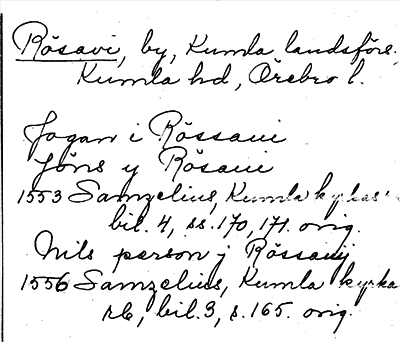 Rösavi, by, Kumla landsförs.
Kumla hd, Örebro l.
Jogan i Rössaui
Jöns y Rösaui
1553 Samzelius, Kumla kyrkas
bil. 4, ss. 170, 171. orig.
Nils person j Rössauj
1556 Samzelius, Kumla kyrka
rb, bil. 3, s. 165. orig.